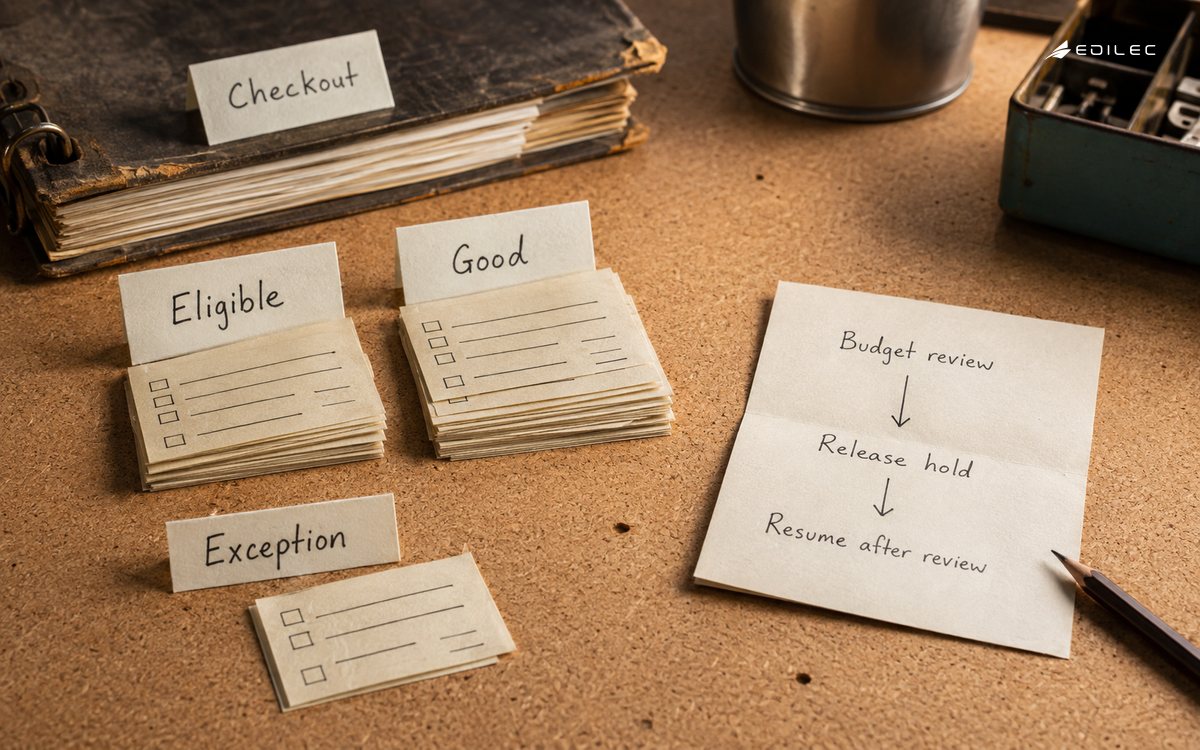 Checkout
EDILEC
Eligible
Good
Budget review
Release hold
Resume after review
Exception